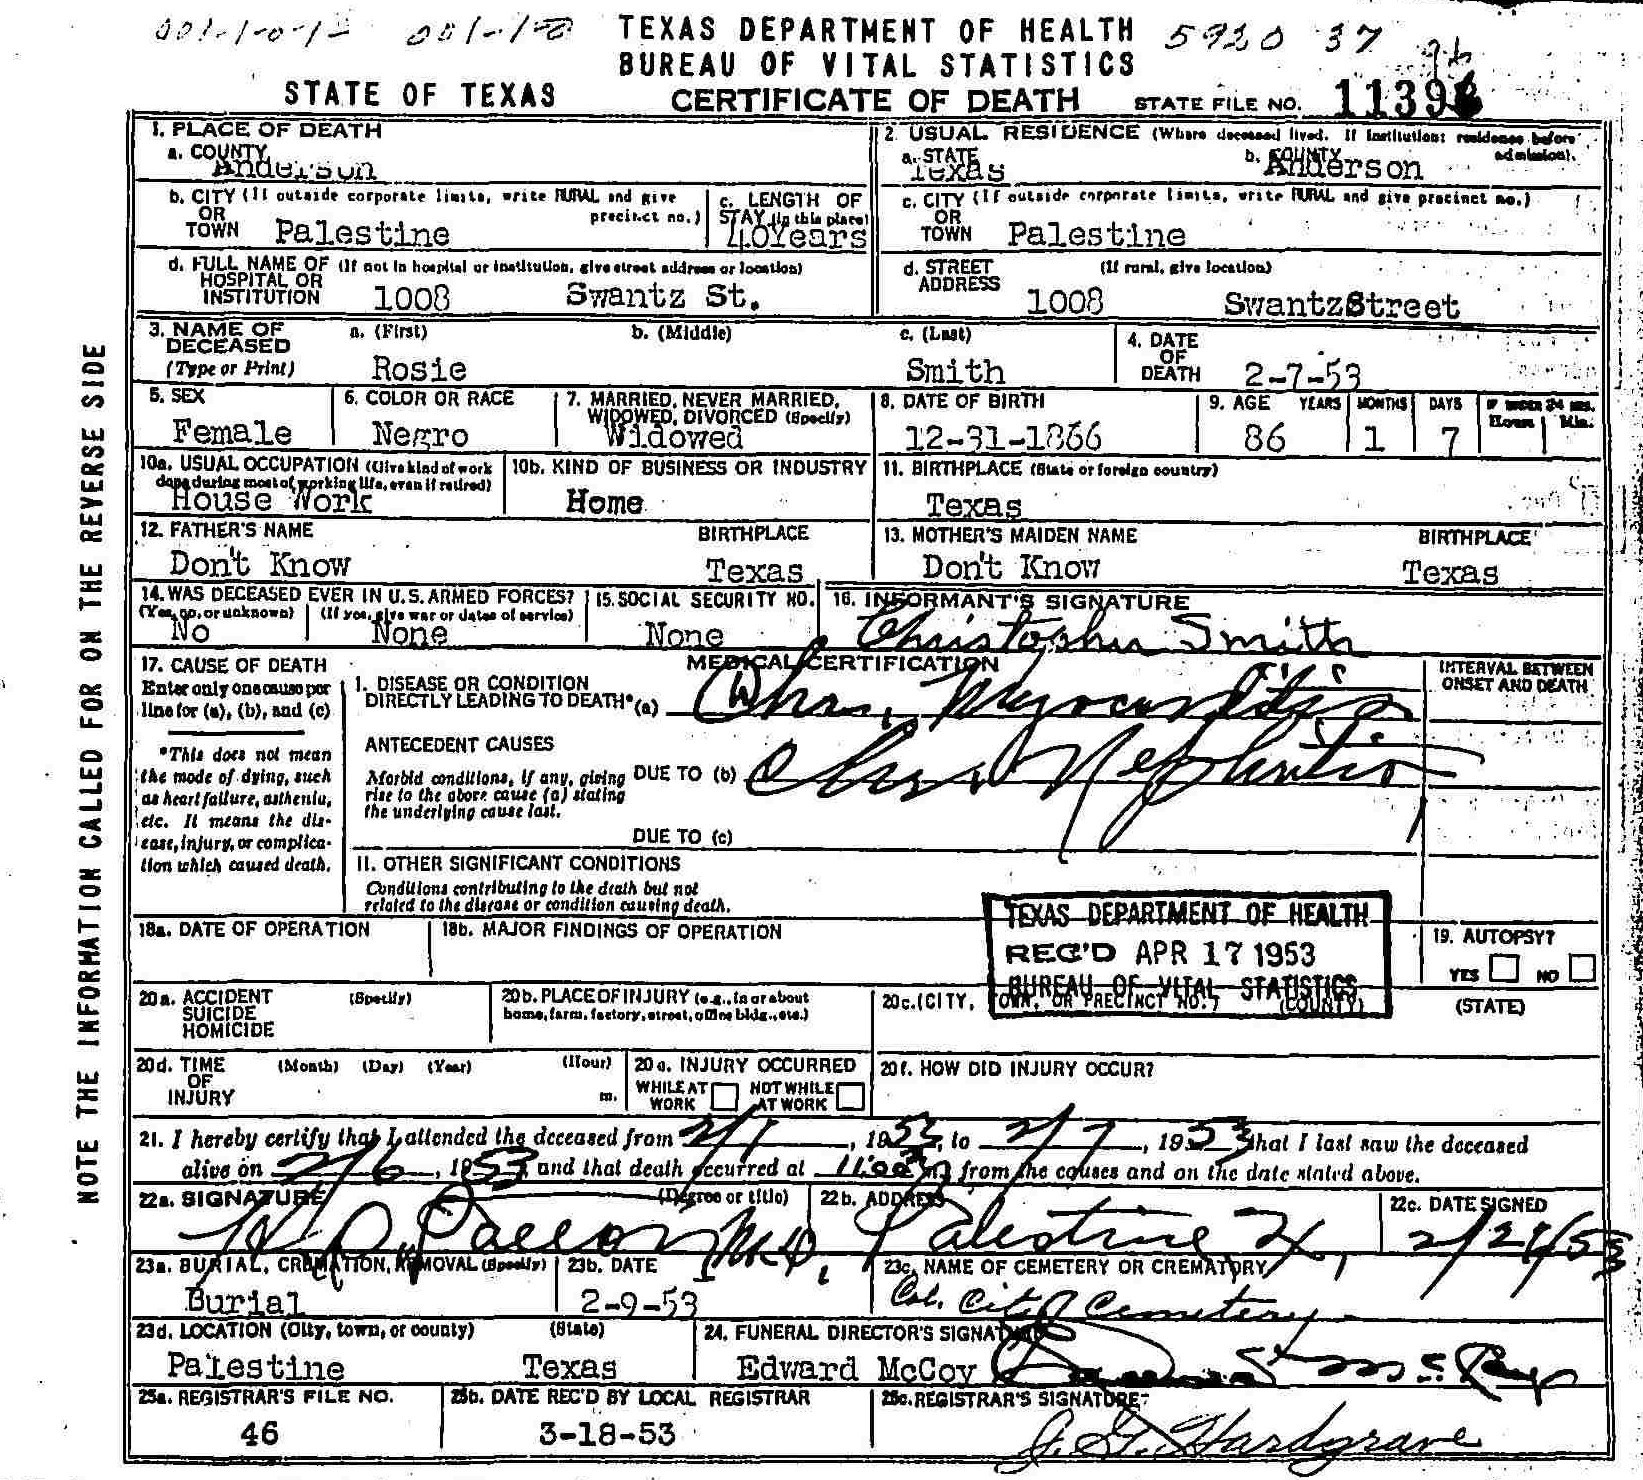 001-1-0-1- 001-1-8 TEXAS DEPARTMENT OF HEALTH 5920 37
BUREAU OF VITAL STATISTICS
STATE OF TEXAS CERTIFICATE OF DEATH STATE FILE NO. 1139
1. PLACE OF DEATH
a. COUNTY
Anderson
2. USUAL RESIDENCE (Where deceased lived. If institution: residence before admission).
a. STATE b. COUNTY
Texas Anderson
b. CITY (If outside corporate limits, write RURAL and give precinct no.)
OR
TOWN Palestine
c. LENGTH OF
STAY (in this place)
40Years
c. CITY (If outside corporate limits, write RURAL and give precinct no.)
OR
TOWN Palestine
d. FULL NAME OF (If not in hospital or institution, give street address or location)
HOSPITAL OR
INSTITUTION 1008 Swantz St.
d. STREET (If rural, give location)
ADDRESS 1008 SwantzStreet
3. NAME OF a. (First) b. (Middle) c. (Last)
DECEASED
(Type or Print) Rosie Smith
4. DATE
OF
DEATH 2-7-53
5. SEX
Female
6. COLOR OR RACE
Negro
7. MARRIED, NEVER MARRIED,
WIDOWED, DIVORCED (Specify)
Widowed
8. DATE OF BIRTH
12-31-1866
9. AGE YEARS MONTHS DAYS IF UNDER 24 HRS.
Hours Min.
86 1 7
10a. USUAL OCCUPATION (Give kind of work
done during most of working life, even if retired)
House Work
10b. KIND OF BUSINESS OR INDUSTRY
Home
11. BIRTHPLACE (State or foreign country)
Texas
12. FATHER'S NAME BIRTHPLACE
Don't Know Texas
13. MOTHER'S MAIDEN NAME BIRTHPLACE
Don't Know Texas
14. WAS DECEASED EVER IN U.S. ARMED FORCES?
(Yes, no, or unknown) (If yes, give war or dates of service)
No None
15. SOCIAL SECURITY NO.
None
16. INFORMANT'S SIGNATURE
Christopher Smith
17. CAUSE OF DEATH
Enter only one cause per
line for (a), (b), and (c)
*This does not mean
the mode of dying, such
as heart failure, asthenia,
etc. It means the dis-
ease, injury, or complica-
tion which caused death.
MEDICAL CERTIFICATION
INTERVAL BETWEEN
ONSET AND DEATH
I. DISEASE OR CONDITION
DIRECTLY LEADING TO DEATH* (a) Chr. Myocarditis
ANTECEDENT CAUSES
Morbid conditions, if any, giving
rise to the above cause (a) stating
the underlying cause last.
DUE TO (b) Chr. Nephritis
DUE TO (c)
II. OTHER SIGNIFICANT CONDITIONS
Conditions contributing to the death but not
related to the disease or condition causing death.
TEXAS DEPARTMENT OF HEALTH
REC'D APR 17 1953
BUREAU OF VITAL STATISTICS
18a. DATE OF OPERATION
18b. MAJOR FINDINGS OF OPERATION
19. AUTOPSY?
YES NO
20a. ACCIDENT (Specify)
SUICIDE
HOMICIDE
20b. PLACE OF INJURY (e.g., in or about
home, farm, factory, street, office bldg., etc.)
20c. (CITY, TOWN, OR PRECINCT NO.) (COUNTY) (STATE)
20d. TIME (Month) (Day) (Year) (Hour)
OF
INJURY m.
20e. INJURY OCCURRED
WHILE AT WORK NOT WHILE AT WORK
20f. HOW DID INJURY OCCUR?
21. I hereby certify that I attended the deceased from 2/1, 1953, to 2/7, 1953 that I last saw the deceased
alive on 2/6, 1953 and that death occurred at 11:00 m from the causes and on the date stated above.
22a. SIGNATURE (Degree or title)
M.D.
22b. ADDRESS
Palestine, Tx,
22c. DATE SIGNED
23a. BURIAL, CREMATION, REMOVAL (Specify)
Burial
23b. DATE
2-9-53
23c. NAME OF CEMETERY OR CREMATORY
Col. City Cemetery
23d. LOCATION (City, town, or county) (State)
Palestine Texas
24. FUNERAL DIRECTOR'S SIGNATURE
Edward McCoy
25a. REGISTRAR'S FILE NO.
46
25b. DATE REC'D BY LOCAL REGISTRAR
3-18-53
25c. REGISTRAR'S SIGNATURE
J. G. Hardgrave
NOTE THE INFORMATION CALLED FOR ON THE REVERSE SIDE